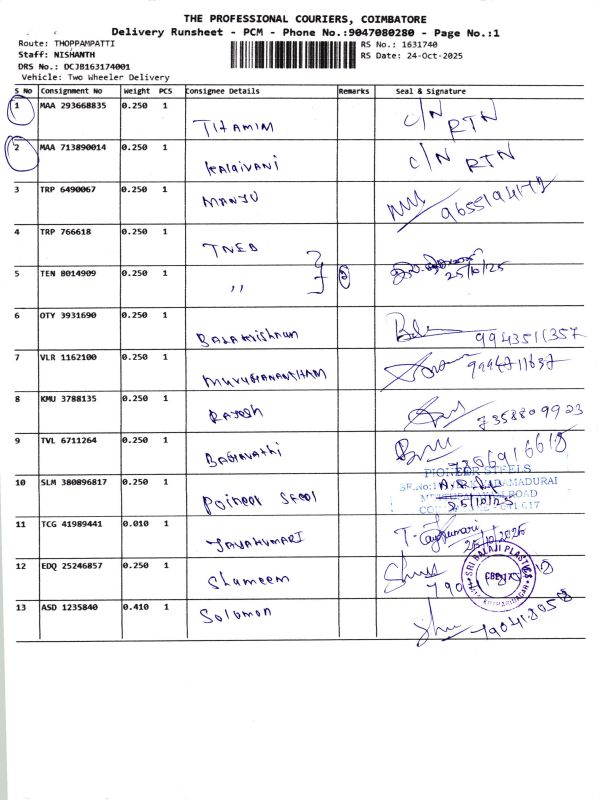 THE PROFESSIONAL COURIERS, COIMBATORE
Delivery Runsheet - PCM - Phone No.:9047080280 - Page No.:1
Route: THOPPAMPATTI
Staff: NISHANTH
DRS No.: DCJB163174001
Vehicle: Two Wheeler Delivery
RS No.: 1631740
RS Date: 24-Oct-2025
S No Consignment No Weight PCS Consignee Details Remarks Seal & Signature
1 MAA 293668835 0.250 1 C/N RTN
2 MAA 713890014 0.250 1 Kalaivani C/N RTN
3 TRP 6490067 0.250 1 MANJU 9655194172
4 TRP 766618 0.250 1 TNEB
5 TEN B014909 0.250 1 ,, 2 25/10/25
6 OTY 3931690 0.250 1 BALAKrishnan 9943511357
7 VLR 1162100 0.250 1 MURUGANANTHAM 9994711637
8 KMU 3788135 0.250 1 Rajesh 7358809923
9 TVL 6711264 0.250 1 BAGIAVAthi 7806916618
10 SLM 380896817 0.250 1 Poineer Steel PIONEER STEELS 25/10/25
11 TCG 41989441 0.010 1 JAYAKUMARI T. Jayakumari 25/10/2025
12 EDQ 25246857 0.250 1 Shameem SRI BALAJI PLASTICS
13 ASD 1235840 0.410 1 Solomon